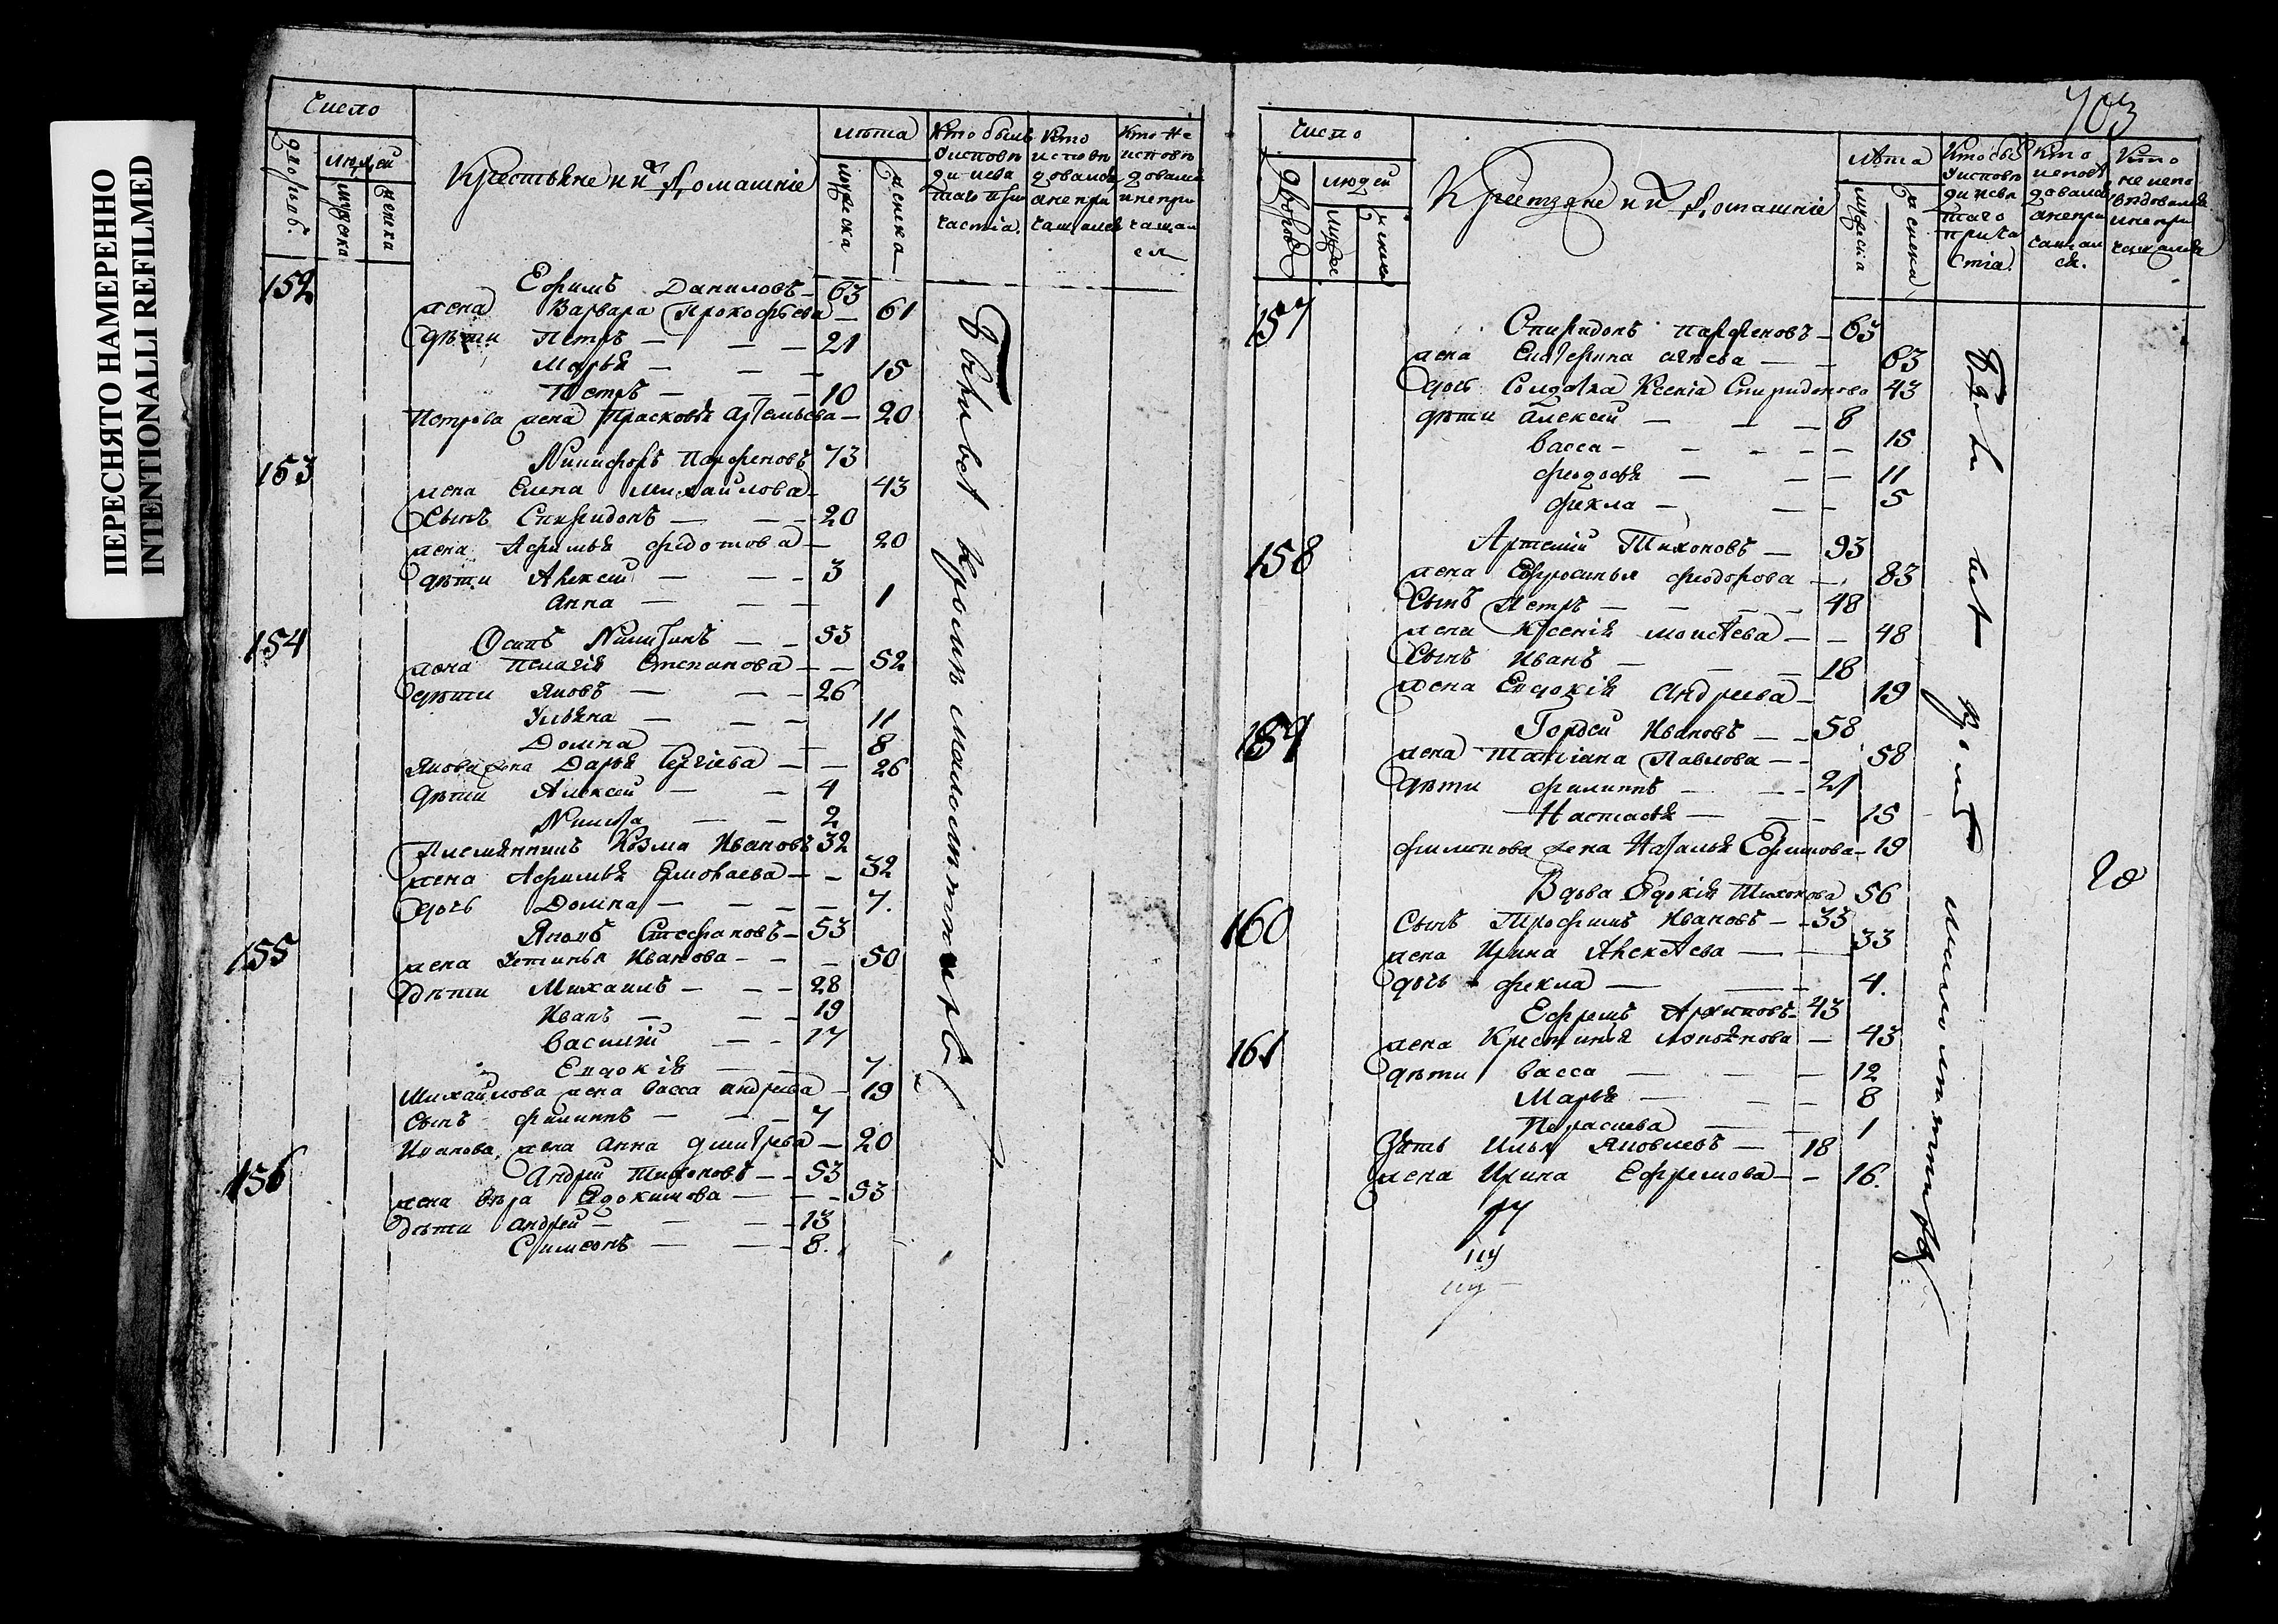 ПЕРЕСНЯТО НАМЕРЕННО
INTENTIONALLI REFILMED
Число
дворовъ.
людей
мужска
женска
Крестьяне и их домашніе
лѣта
мужеска
женска
Кто былъ у исповѣди и свята(го) причастія.
Кто исповѣдовался а не причащался
Кто не исповѣдовался и не причащался
152
Ефимъ Даниловъ — 63
жена Варвара Прокофьева — 61
дѣти Петръ — 21
Марья — 15
Петръ — 10
Петрова жена Прасковья — 20
153
Никифоръ Парфеновъ 73
жена Елена Михайлова — 43
Сынъ Спиридонъ — 20
жена Афимья Федотова — 20
дѣти Алексей — 3
Анна — 1
154
Осипъ — 53
жена Пелагія Степанова — 52
дѣти Яковъ — 26
Ульяна — 11
Домна — 8
Яковa жена Дарья Сергіева — 26
дѣти Алексей — 4
Никита — 2
Племянникъ Козма Ивановъ 32
жена Афимья — 32
дочь Домна — 7.
155
Яковъ Стефановъ — 53
жена Устинья Иванова — 50
дѣти Михаилъ — 28
Иванъ — 19
Василій — 17
Евдокія — 7
Михайлова жена Васса Андреева — 19
Сынъ Филиппъ — 7
Иванова жена Анна Дмитрева — 20
156
Андрей Тихоновъ — 53
жена Вѣра Евдокимова — 53
дѣти Андрей — 13
Симеонъ — 8.
Были всѣ кромѣ малолѣтнихъ
703
Число
дворовъ
людей
мужска
женска
Крестьяне и их домашніе
лѣта
мужеска
женска
Кто былъ у исповѣди и свята(го) причастія.
Кто исповѣдовался а не причащался.
Кто не исповѣдовался и не причащался
157
Спиридонъ Парфеновъ — 65
жена Екатерина — 63
дочь Солдатка Ксенія Спиридонова 43
дѣти Алексей — 8
Васса — 15
Федосья — 11
Фекла — 5
158
Артемій Тихоновъ — 93
жена Ефросинья Феодорова — 83
Сынъ Петръ — 48
жена Ксенія Моисѣева — 48
Сынъ Иванъ — 18
жена Евдокія Андреева — 19
159
Гордей Ивановъ — 58
жена Татіана Павлова — 58
дѣти Филиппъ — 21
Настасья — 15
Филипова жена Наталья Ефимова — 19
160
Вдова Евдокія Тихонова 56
Сынъ Трофимъ Ивановъ — 33
жена Ирина Алексѣева — 33
дочь Фекла — 4.
161
Ефремъ Архиповъ — 43
жена Крестинья — 43
дѣти Васса — 12
Марья — 8
Парасева — 1
Зять Илья Яковлевъ — 18
жена Ирина Ефремова — 16.
Были всѣ кромѣ малолѣтнихъ